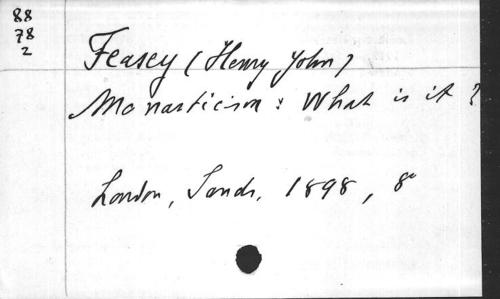 88
78
2
Feasey (Henry John)
Monasticism: What is it?
London, Sands, 1898, 8°